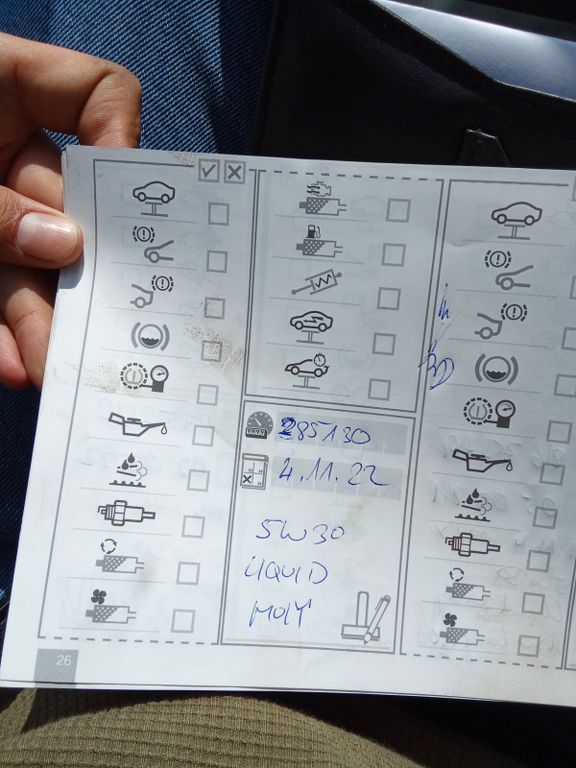 285130
4.11.22
5W30
LIQUID
MOLY
26